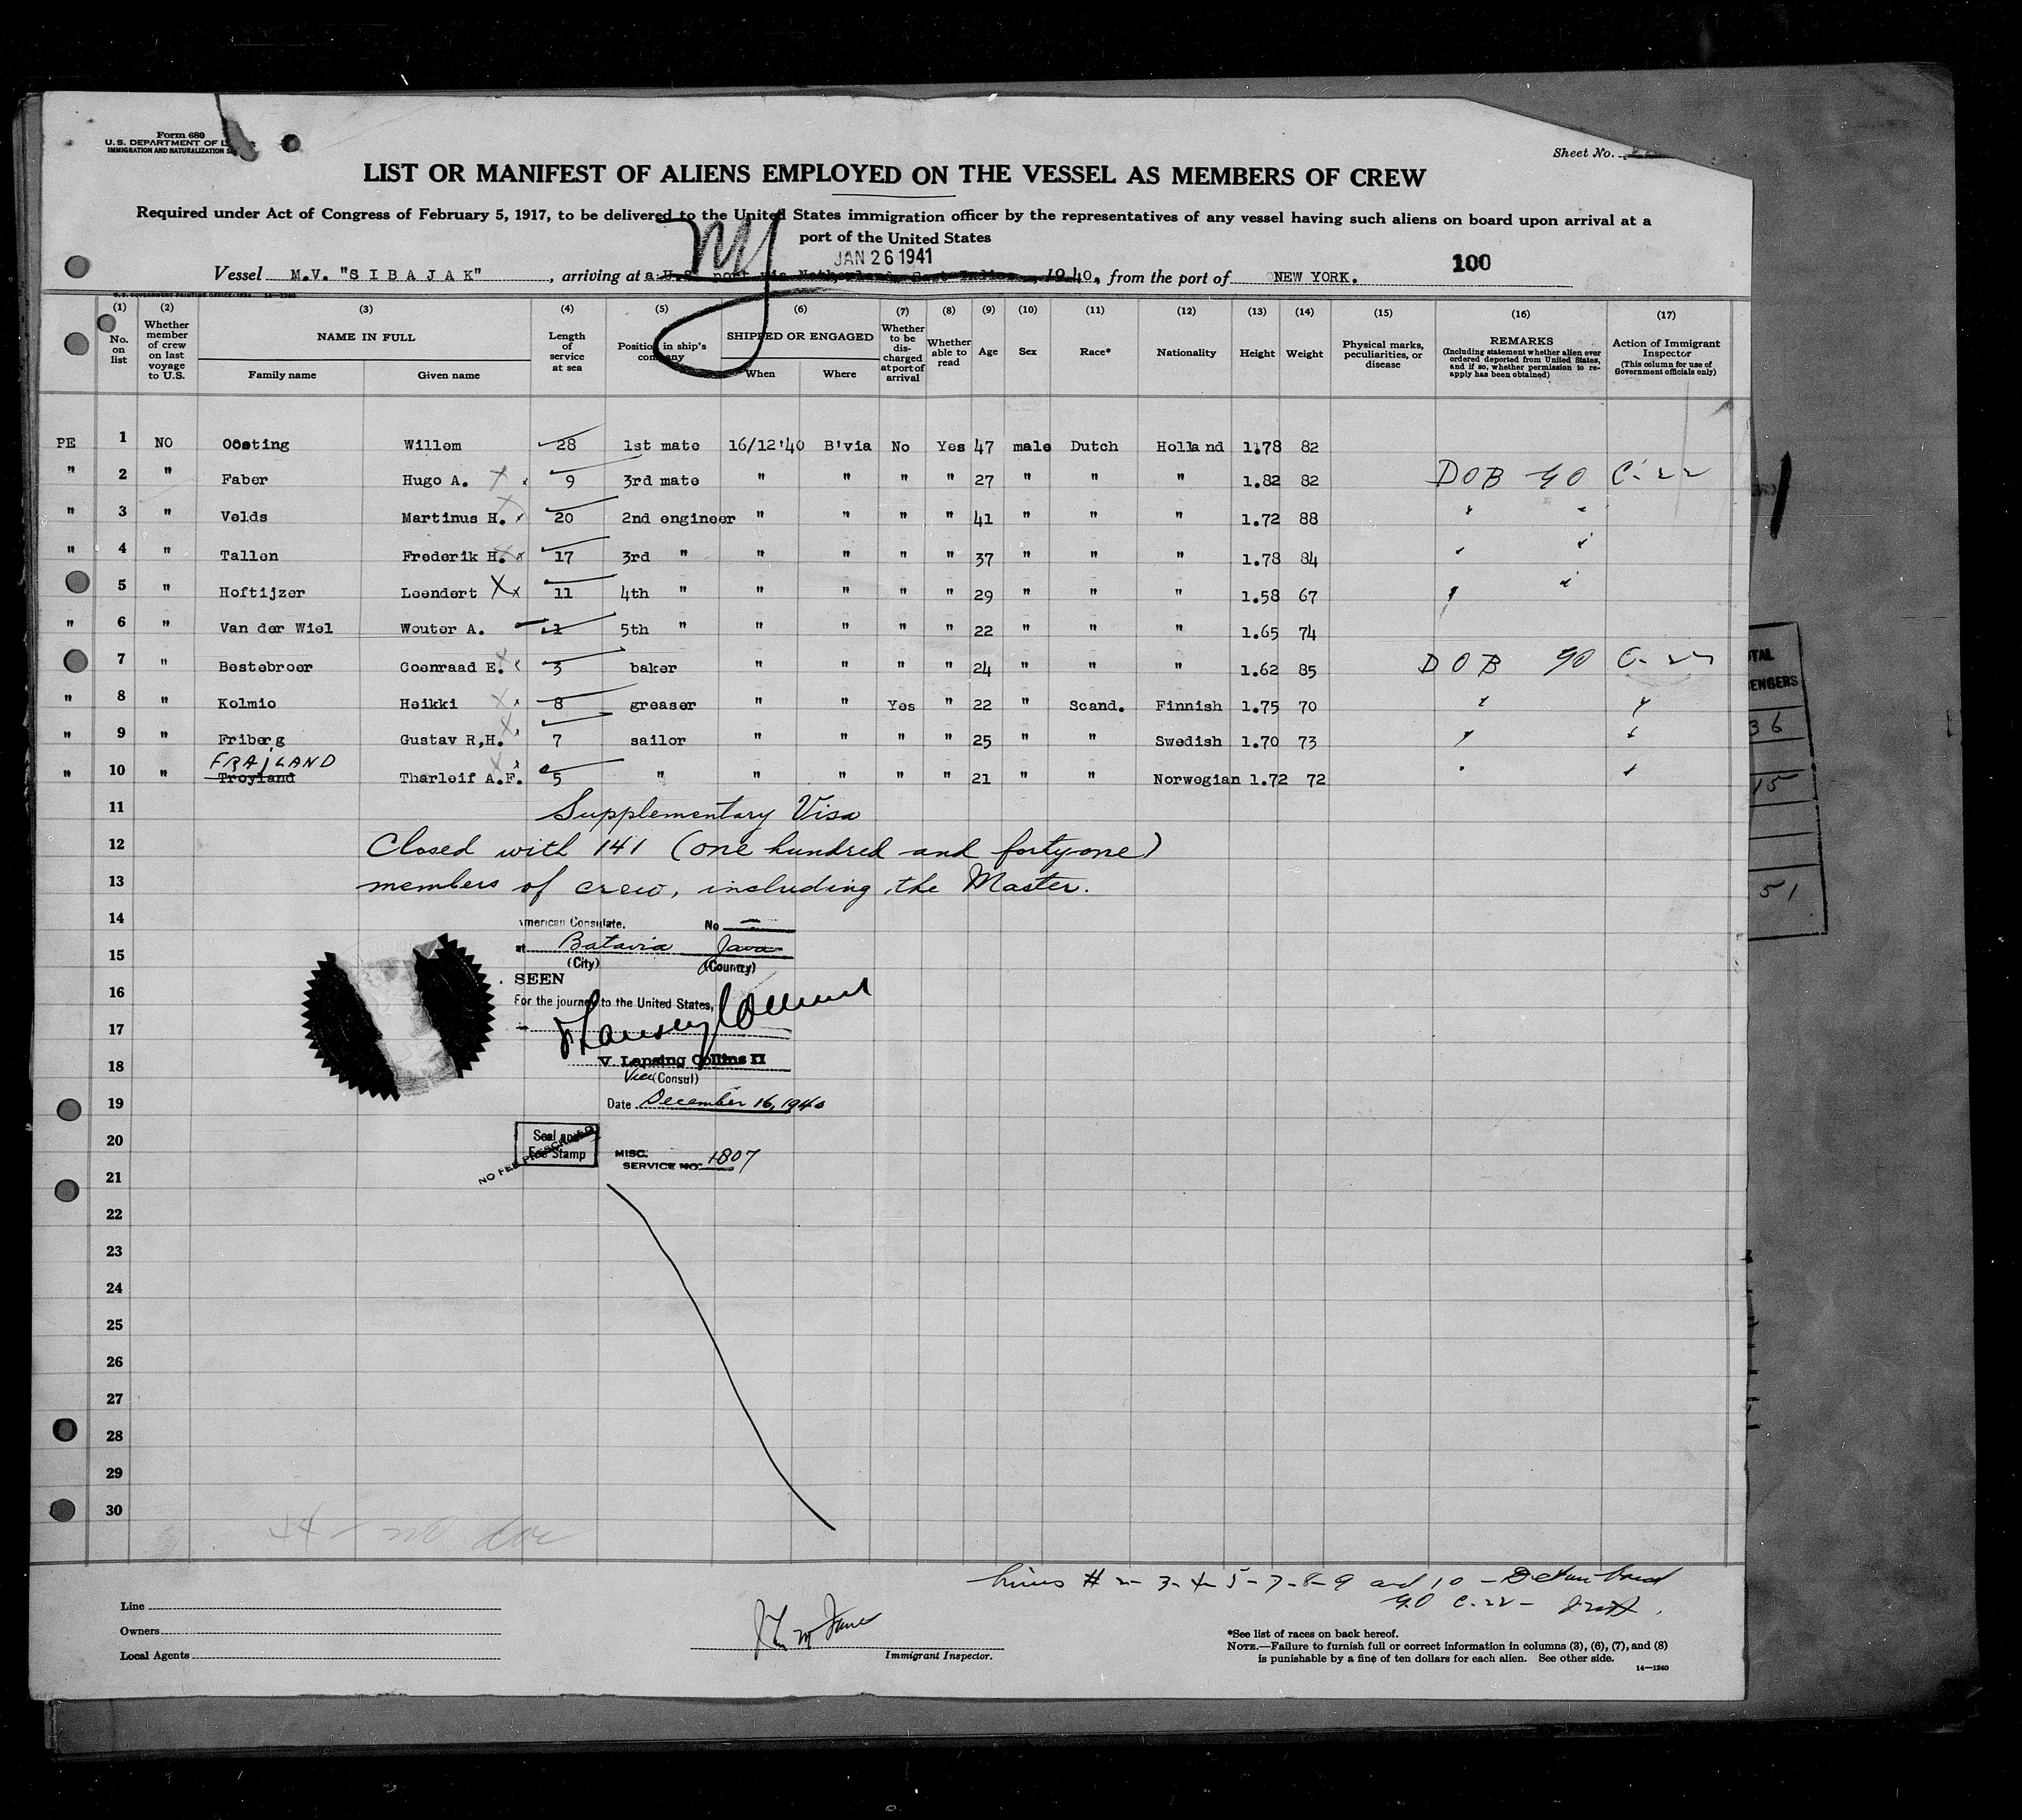 Form 680
U.S. DEPARTMENT OF
IMMIGRATION AND NATURALIZATION
Sheet No.
LIST OR MANIFEST OF ALIENS EMPLOYED ON THE VESSEL AS MEMBERS OF CREW
Required under Act of Congress of February 5, 1917, to be delivered to the United States immigration officer by the representatives of any vessel having such aliens on board upon arrival at a
port of the United States
NY
JAN 26 1941
100
Vessel M.V. "SIBAJAK", arriving at a U.S. port via Netherland East Indies, 1940, from the port of NEW YORK.
(1) (2) (3) (4) (5) (6) (7) (8) (9) (10) (11) (12) (13) (14) (15) (16) (17)
No. on list
Whether member of crew on last voyage to U.S.
NAME IN FULL
Family name
Given name
Length of service at sea
Position in ship's company
SHIPPED OR ENGAGED
When
Where
Whether to be discharged at port of arrival
Whether able to read
Age
Sex
Race*
Nationality
Height
Weight
Physical marks, peculiarities, or disease
REMARKS
(Including statement whether alien ever ordered deported from United States, and if so, whether permission to reapply has been obtained)
Action of Immigrant Inspector
(This column for use of Government officials only)
PE 1 NO Oosting Willem 28 1st mate 16/12'40 B'via No Yes 47 male Dutch Holland 1.78 82
" 2 " Faber Hugo A. 9 3rd mate " " " " 27 " " " 1.82 82 DOB 90 C-22
" 3 " Velds Martinus H. 20 2nd engineer " " " " 41 " " " 1.72 88 " "
" 4 " Tallen Frederik H. 17 3rd " " " " " 37 " " " 1.78 84 " "
" 5 " Hoftijzer Leendert 11 4th " " " " " 29 " " " 1.58 67 " "
" 6 " Van der Wiel Wouter A. 1 5th " " " " " 22 " " " 1.65 74
" 7 " Bestebroer Coenraad E. 3 baker " " " " 24 " " " 1.62 85 DOB 90 C-22
" 8 " Kolmio Heikki 8 greaser " " Yes " 22 " Scand. Finnish 1.75 70 " "
" 9 " Friberg Gustav R,H. 7 sailor " " " " 25 " " Swedish 1.70 73 " "
FRAJLAND
" 10 " Troyland Tharleif A.F. 5 " " " " " 21 " " Norwegian 1.72 72 " "
11 Supplementary Visa
12 Closed with 141 (one hundred and forty one)
13 members of crew, including the Master.
14 American Consulate. No
15 at Batavia Java
(City) (Country)
SEEN
16 For the journey to the United States,
17
V. Lansing Collins II
18 Vice (Consul)
19 Date December 16, 1940
20 Seal and
Fee Stamp
NO FEE PRESCRIBED
MISC.
SERVICE NO. 1807
21
22
23
24
25
26
27
28
29
30
Lines # 2-3-4-5-7-8-9 and 10 -
90 C-22 -
Line
Owners
Local Agents
Immigrant Inspector.
*See list of races on back hereof.
NOTE.—Failure to furnish full or correct information in columns (3), (6), (7), and (8)
is punishable by a fine of ten dollars for each alien. See other side.
14—1240
TAL
ENGERS
36
15
51